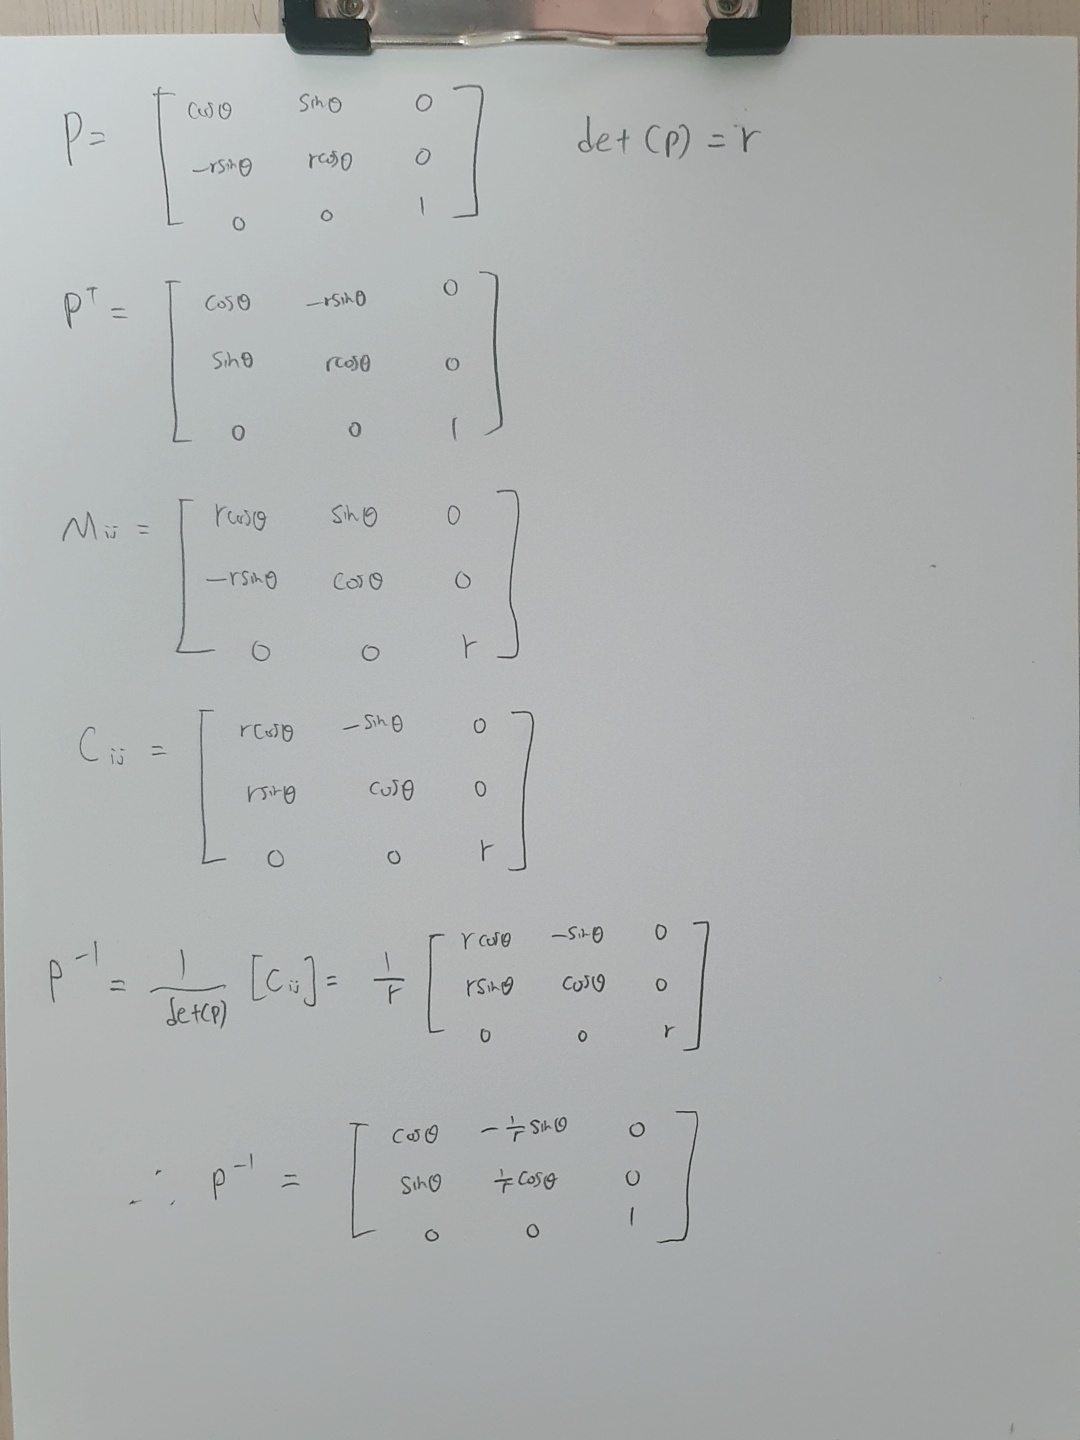 P = [ cosθ sinθ 0 det(P) = r
-rsinθ rcosθ 0
0 0 1 ]
P^T = [ cosθ -rsinθ 0
sinθ rcosθ 0
0 0 1 ]
M_ij = [ rcosθ sinθ 0
-rsinθ cosθ 0
0 0 r ]
C_ij = [ rcosθ -sinθ 0
rsinθ cosθ 0
0 0 r ]
P^-1 = 1/det(P) [C_ij] = 1/r [ rcosθ -sinθ 0
rsinθ cosθ 0
0 0 r ]
∴ P^-1 = [ cosθ -1/r sinθ 0
sinθ 1/r cosθ 0
0 0 1 ]